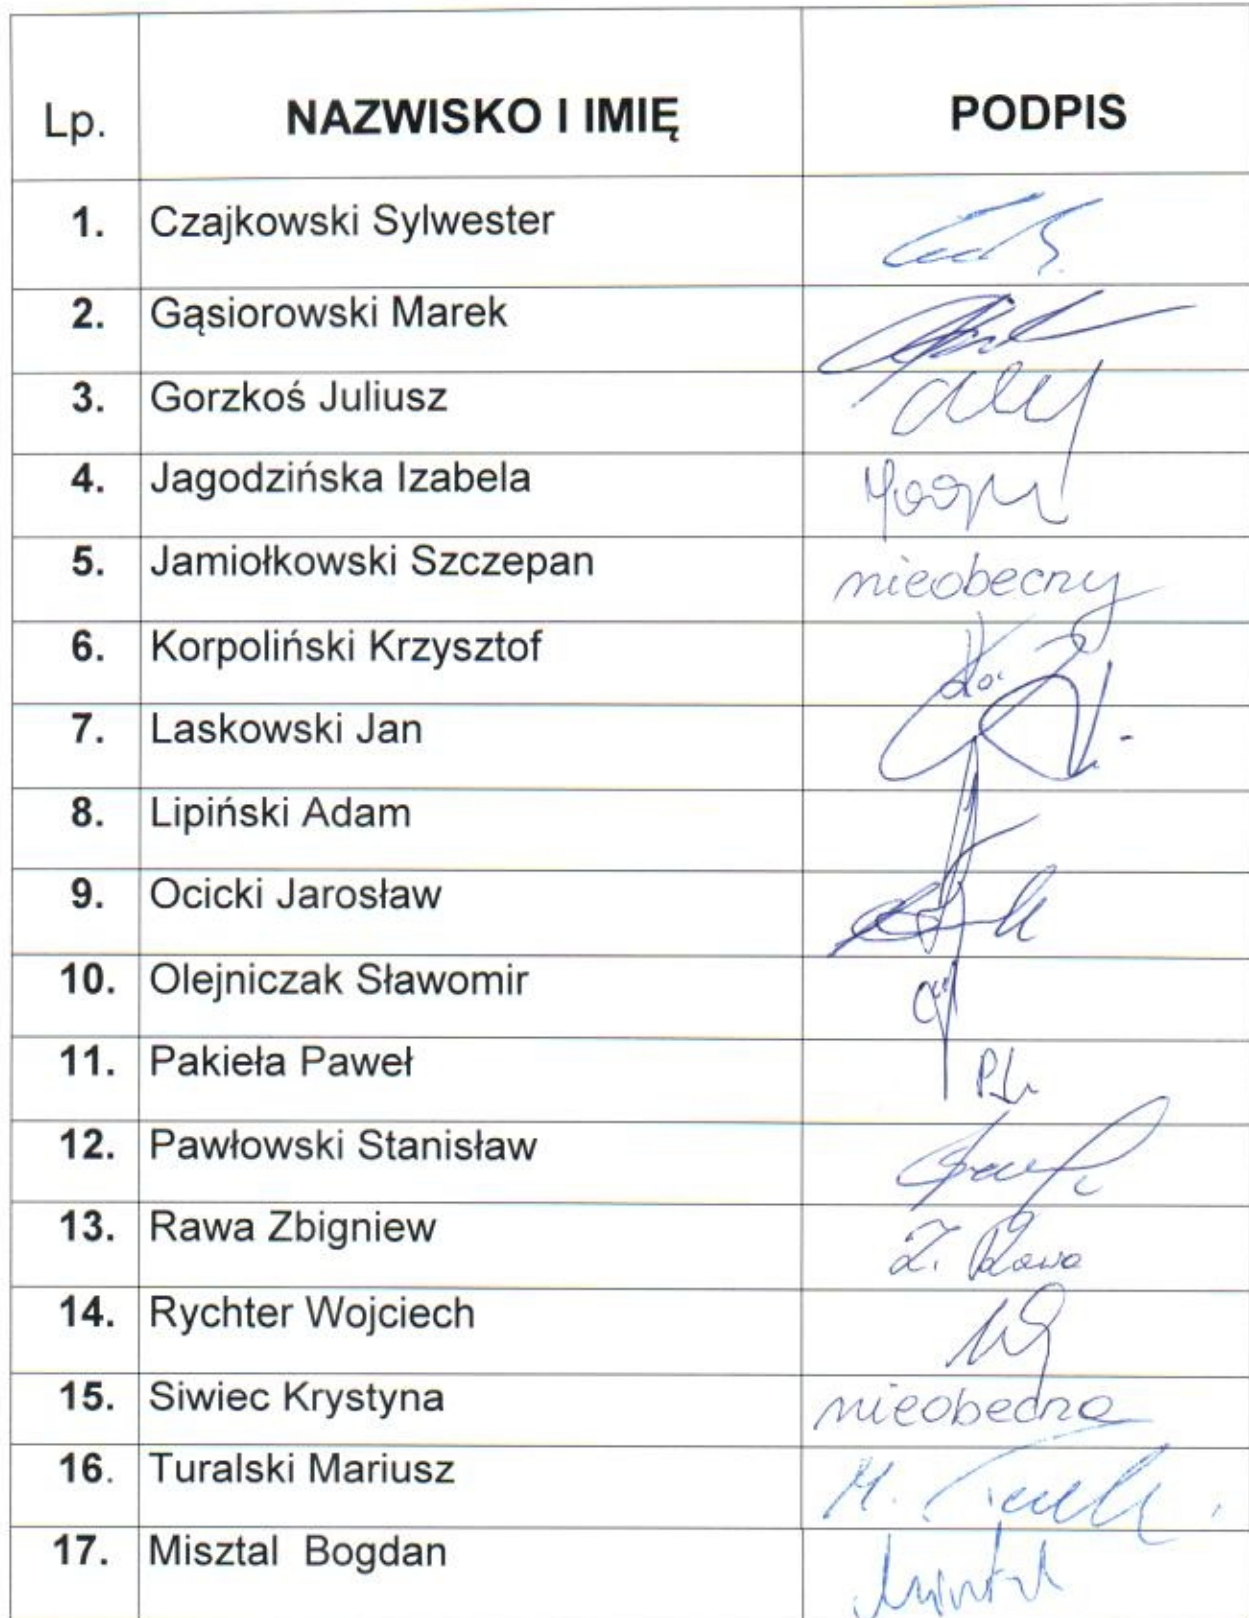 Lp. NAZWISKO I IMIĘ PODPIS
1. Czajkowski Sylwester
2. Gąsiorowski Marek
3. Gorzkoś Juliusz
4. Jagodzińska Izabela
5. Jamiołkowski Szczepan nieobecny
6. Korpoliński Krzysztof
7. Laskowski Jan
8. Lipiński Adam
9. Ocicki Jarosław
10. Olejniczak Sławomir
11. Pakieła Paweł
12. Pawłowski Stanisław
13. Rawa Zbigniew Z. Rawa
14. Rychter Wojciech
15. Siwiec Krystyna nieobecna
16. Turalski Mariusz
17. Misztal Bogdan